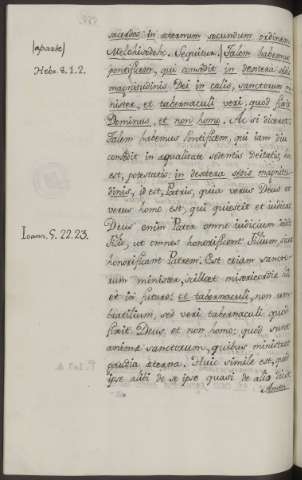 sacerdos in aeternum secundum ordinem
Melchisedek. Sequitur. Talem habemus
pontificem, qui consedit in dextera sedis
magnitudinis Dei in caelis, sanctorum mi
nister, et tabernaculi veri, quod fixit
Dominus, et non homo. Ac si diceret:
Talem habemus pontificem, qui jam diu
consedit in aequalitate sedentis Deitatis, id
est, potestatis: in dextera sedis magnitu
dinis, id est, Patris, quia verus Deus et
verus homo est, qui quiescit et judicat
Deus enim Pater omne judicium dedit
Filio, ut omnes honorificent Filium, sicut
honorificant Patrem. Est etiam sancto
rum minister, scilicet misericordiae
et in futuro; et tabernaculi, non um
bratilium, sed veri tabernaculi quod
fixit Deus, et non homo; quod sunt
animae sanctorum, quibus ministrat
gaudia aeterna. Huic simile est, quod
ipse alibi de se ipse quasi de alio dicit
Amen
Hebr. 8. 1. 2.
Ioann. 5. 22. 23.